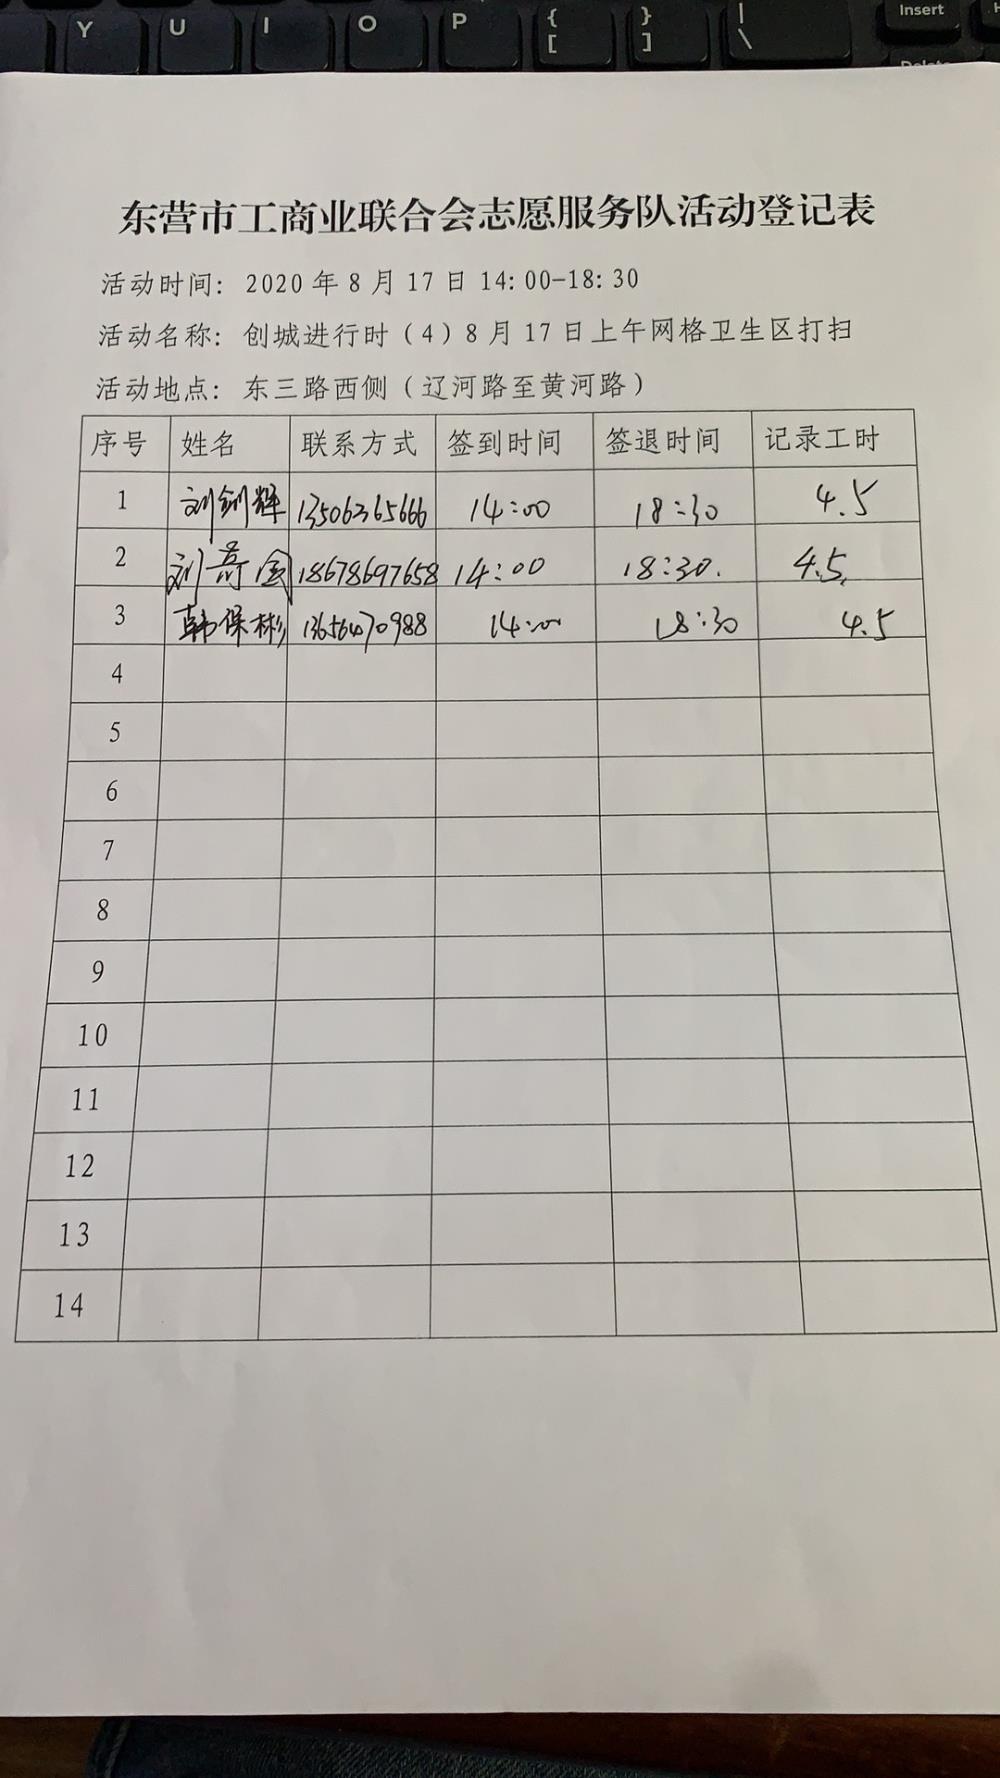 Y U I O P { [ } ] | \ Insert
Delete
东营市工商业联合会志愿服务队活动登记表
活动时间: 2020 年 8 月 17 日 14: 00-18: 30
活动名称: 创城进行时（4）8 月 17 日上午网格卫生区打扫
活动地点: 东三路西侧（辽河路至黄河路）
序号 姓名 联系方式 签到时间 签退时间 记录工时
1 刘剑辉 13506365666 14:00 18:30 4.5
2 刘 18678697658 14:00 18:30. 4.5.
3 韩保彬 13656470988 14:00 18:30 4.5
4
5
6
7
8
9
10
11
12
13
14